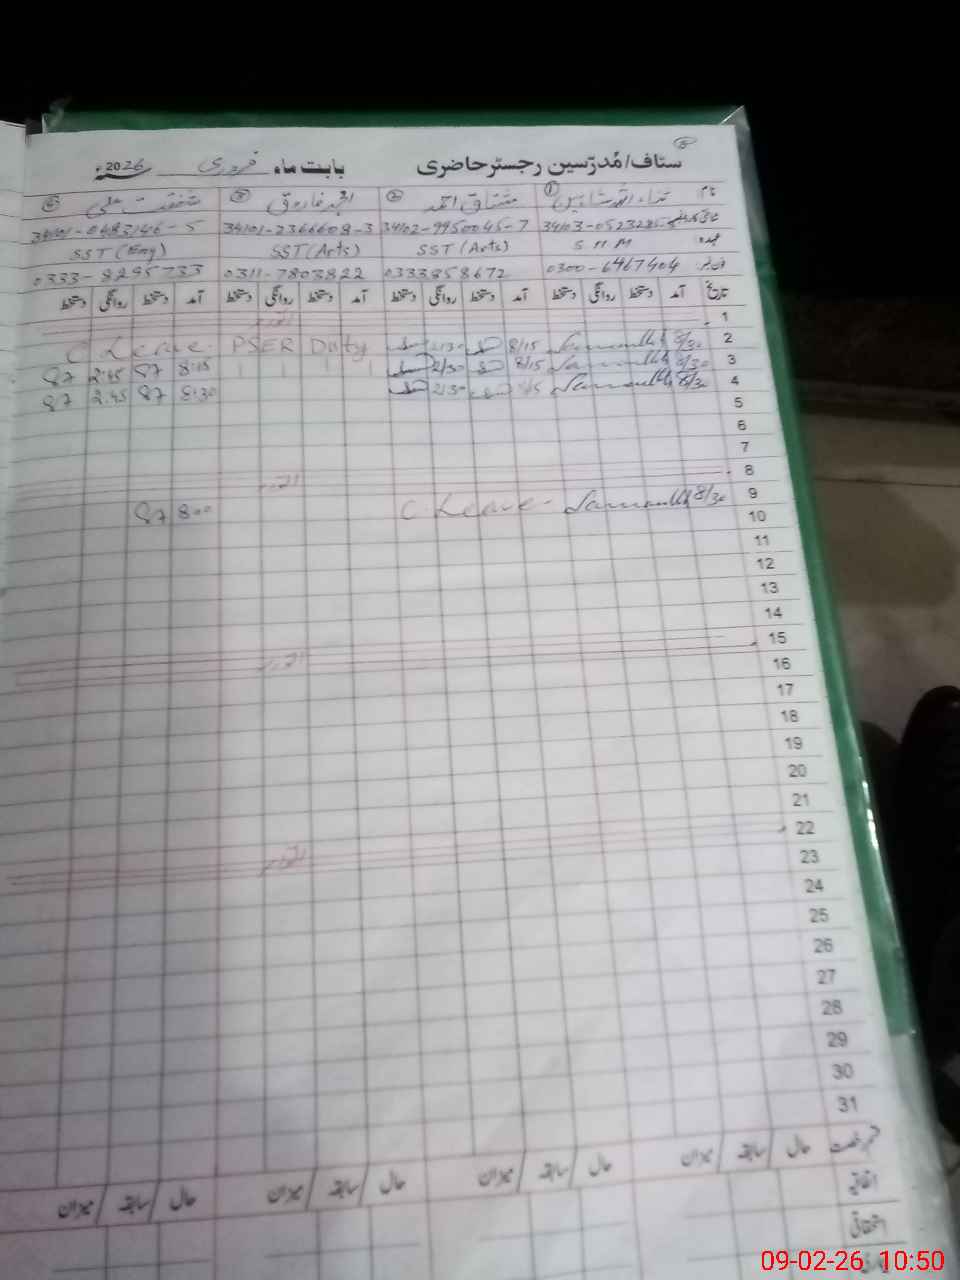 سٹاف/مُدرّسین رجسٹر حاضری بابت ماہ فروری 2026ء
نام ① ثناء اللہ مشتاق احمد امجد فاروق شفقت علی
34103-0523285- 34102-9950045-7 34101-2366608-3 34101-0483146-5
عہدہ SHM SST (Arts) SST (Arts) SST (Eng)
0300-6467404 0333858672 0311-7803822 0333-8295733
تاریخ آمد دستخط روانگی دستخط آمد دستخط روانگی دستخط آمد دستخط روانگی دستخط آمد دستخط روانگی دستخط
1 اتوار
2 8/30 8/15 2/30 PSER Duty C Leave
3 8/30 8/15 2/30 8:15 2:45
4 8/30 2/30 8:30 2:45
5
6
7
8 اتوار
9 8/30 C. Leave 800
10
11
12
13
14
15 اتوار
16
17
18
19
20
21
22 اتوار
23
24
25
26
27
28
29
30
31
حال / سابقہ / میزان حال / سابقہ / میزان حال / سابقہ / میزان حال / سابقہ / میزان
اتفاقیہ
استحقاقی
09-02-26 10:50